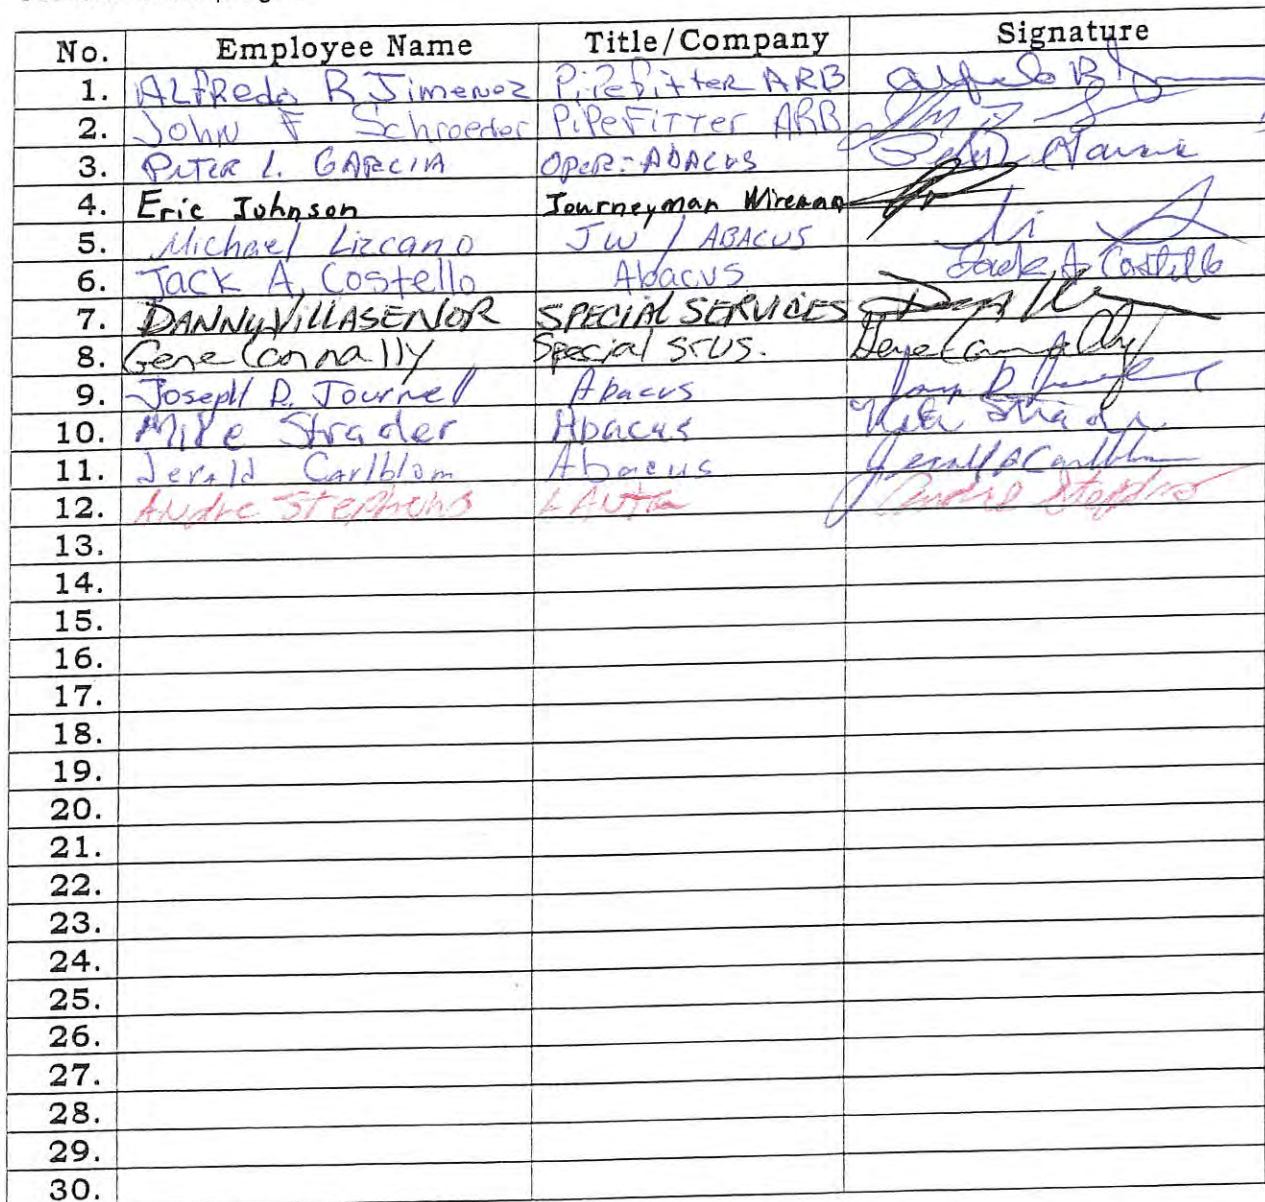 No. Employee Name Title/Company Signature
1. ALfRedo R Jimenez Pipefitter ARB
2. John F Schroeder PiPeFiTTer ARB
3. PeTeR L. GARCIA OPeR-ABACUS
4. Eric Johnson Journeyman Wireman
5. Michael Lizcano JW / ABACUS
6. Jack A. Costello Abacus Jack A Costello
7. DANNY VILLASENOR SPECIAL SERVICES
8. Gene Connally Special srvs. Gene Connally
9. Joseph D. Journel Abacus
10. Mike Strader Abacus Mike Strader
11. Jerald Carlblom Abacus Jerald Carlblom
12. Andre Stephens Andre Stephens
13.
14.
15.
16.
17.
18.
19.
20.
21.
22.
23.
24.
25.
26.
27.
28.
29.
30.